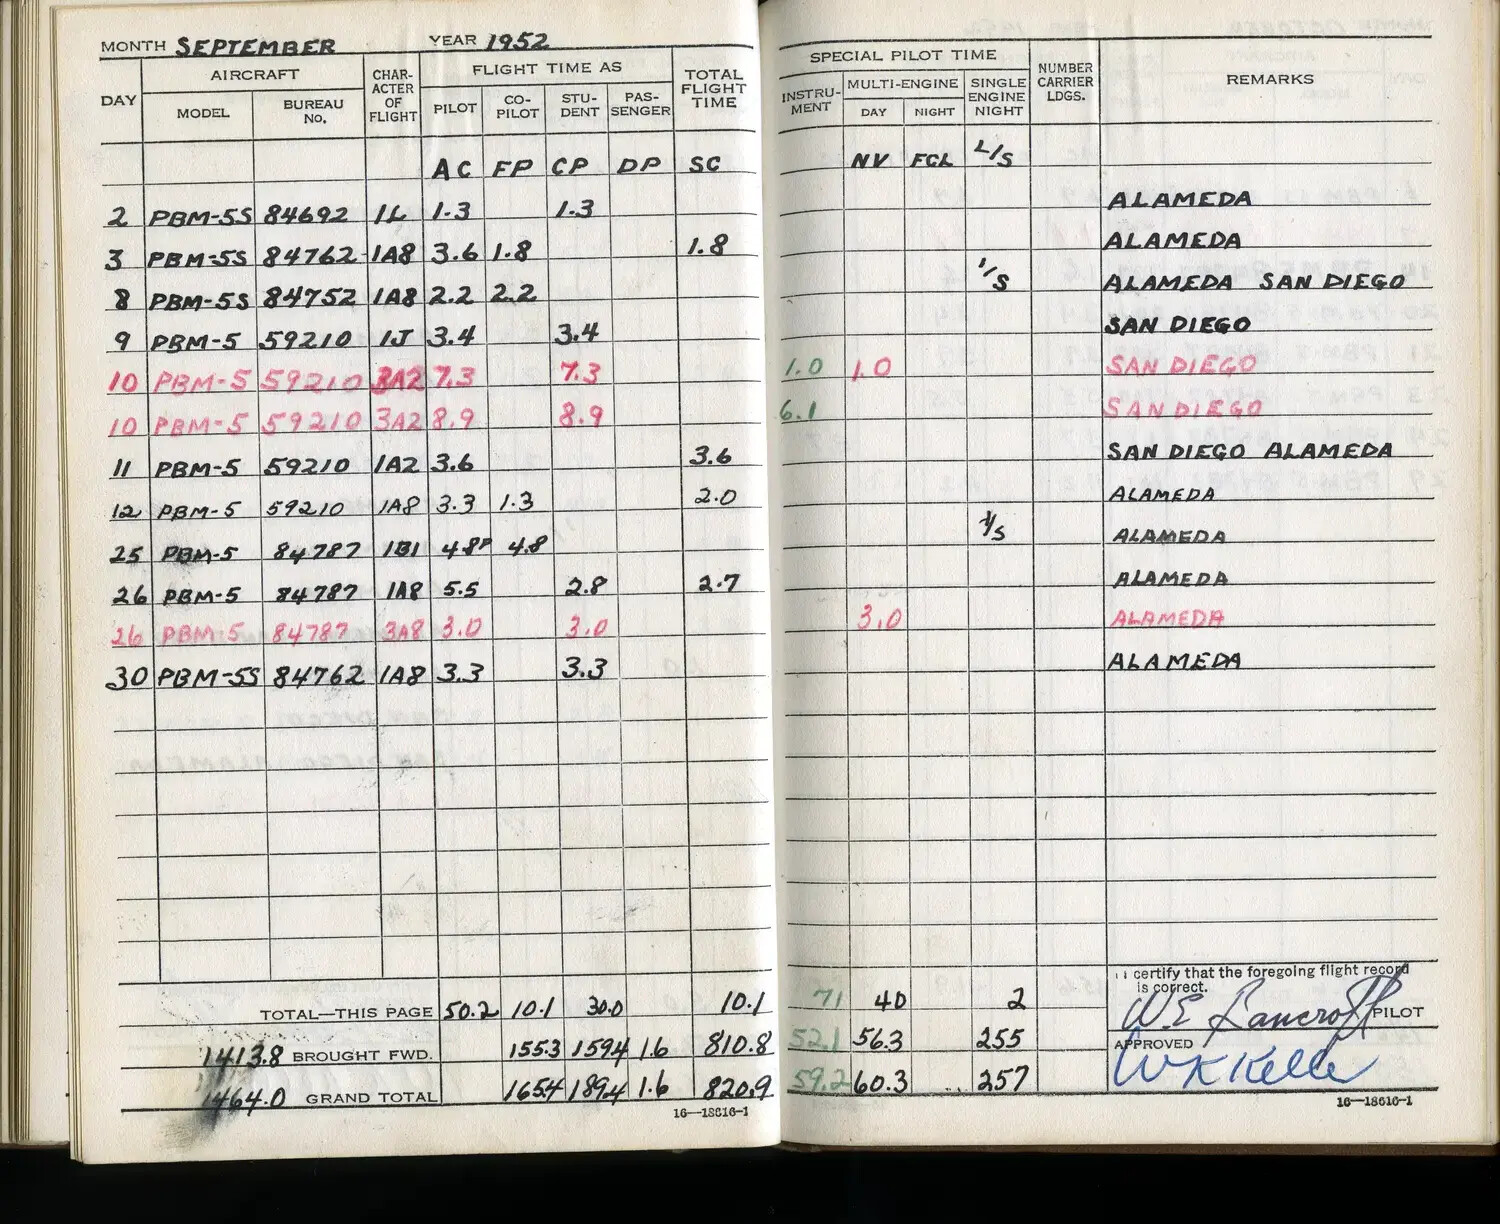 MONTH SEPTEMBER YEAR 1952
DAY AIRCRAFT CHARACTER OF FLIGHT FLIGHT TIME AS TOTAL FLIGHT TIME SPECIAL PILOT TIME NUMBER CARRIER LDGS. REMARKS
MODEL BUREAU No. PILOT CO-PILOT STUDENT PASSENGER INSTRUMENT MULTI-ENGINE SINGLE ENGINE NIGHT
DAY NIGHT
AC FP CP DP SC NV FCL L/S
2 PBM-5S 84692 1L 1.3 1.3 ALAMEDA
3 PBM-5S 84762 1A8 3.6 1.8 1.8 ALAMEDA
8 PBM-5S 84752 1A8 2.2 2.2 1/S ALAMEDA SAN DIEGO
9 PBM-5 59210 1J 3.4 3.4 SAN DIEGO
10 PBM-5 59210 3A2 7.3 7.3 1.0 1.0 SAN DIEGO
10 PBM-5 59210 3A2 8.9 8.9 6.1 SAN DIEGO
11 PBM-5 59210 1A2 3.6 3.6 SAN DIEGO ALAMEDA
12 PBM-5 59210 1A8 3.3 1.3 2.0 ALAMEDA
25 PBM-5 84787 1B1 4.8P 4.8 1/S ALAMEDA
26 PBM-5 84787 1A8 5.5 2.8 2.7 ALAMEDA
26 PBM-5 84787 3A8 3.0 3.0 3.0 ALAMEDA
30 PBM-5S 84762 1A8 3.3 3.3 ALAMEDA
I certify that the foregoing flight record is correct.
TOTAL—THIS PAGE 50.2 10.1 30.0 10.1 71 40 2 W.E. Bancroft PILOT
1413.8 BROUGHT FWD. 155.3 159.4 1.6 810.8 52.1 56.3 255 APPROVED
1464.0 GRAND TOTAL 165.4 189.4 1.6 820.9 59.2 60.3 257 WK Keller
16—18616-1 16—18616-1